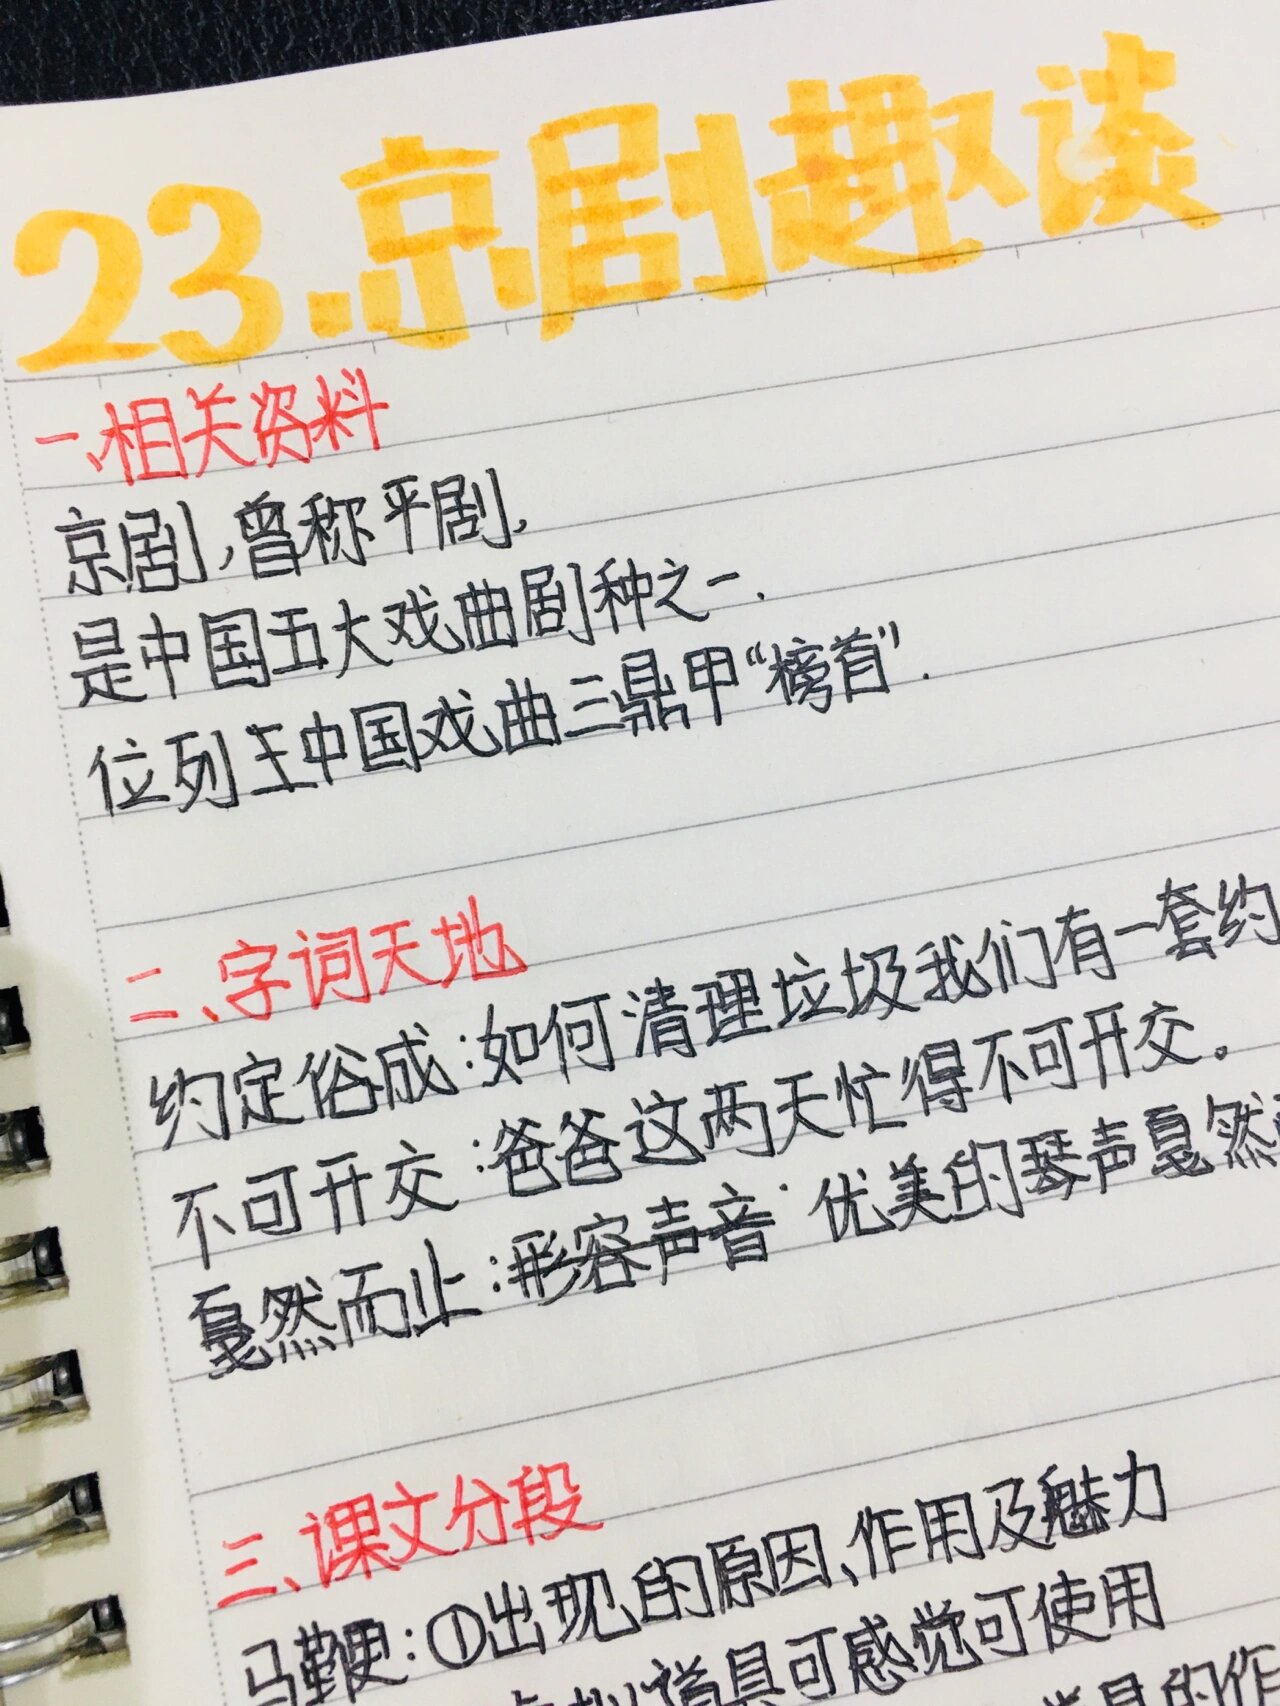 23.京剧趣谈
一、相关资料
京剧,曾称平剧,
是中国五大戏曲剧种之一.
位列中国戏曲三鼎甲“榜首”.
二、字词天地
约定俗成:如何清理垃圾我们有一套约
不可开交:爸爸这两天忙得不可开交。
戛然而止:形容声音 优美的琴声戛然
三、课文分段
马鞭:①出现的原因、作用及魅力
道具可感觉可使用
的作